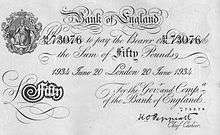 Bank of England
73076
73076
to pay the Bearer
the Sum of Fifty Pounds
1934 June 20 London 20 June 1934
£Fifty
For the Gov.r and Comp.a
of the Bank of England
Chief Cashier